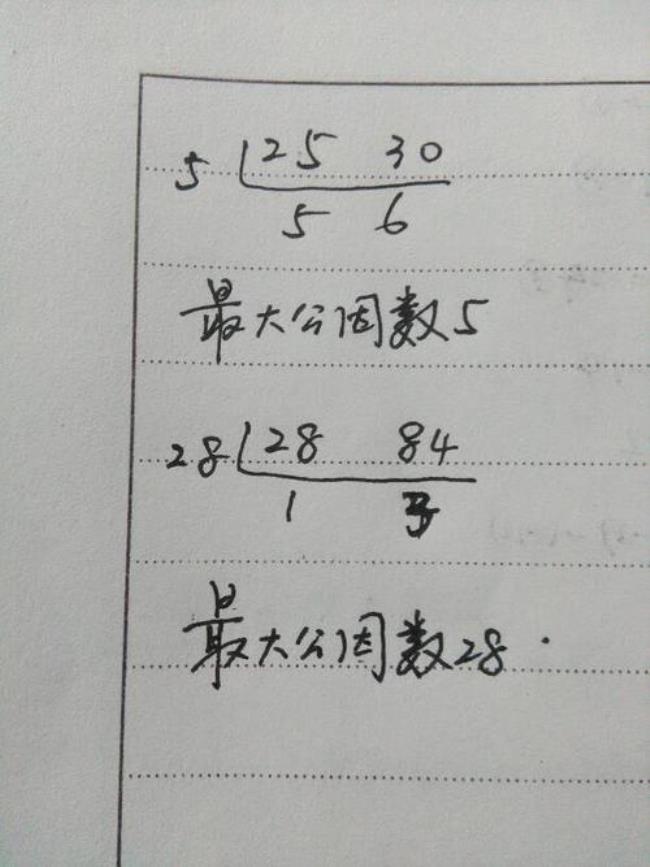 5 25 30
5 6
最大公因数5
28 28 84
1 3
最大公因数28.